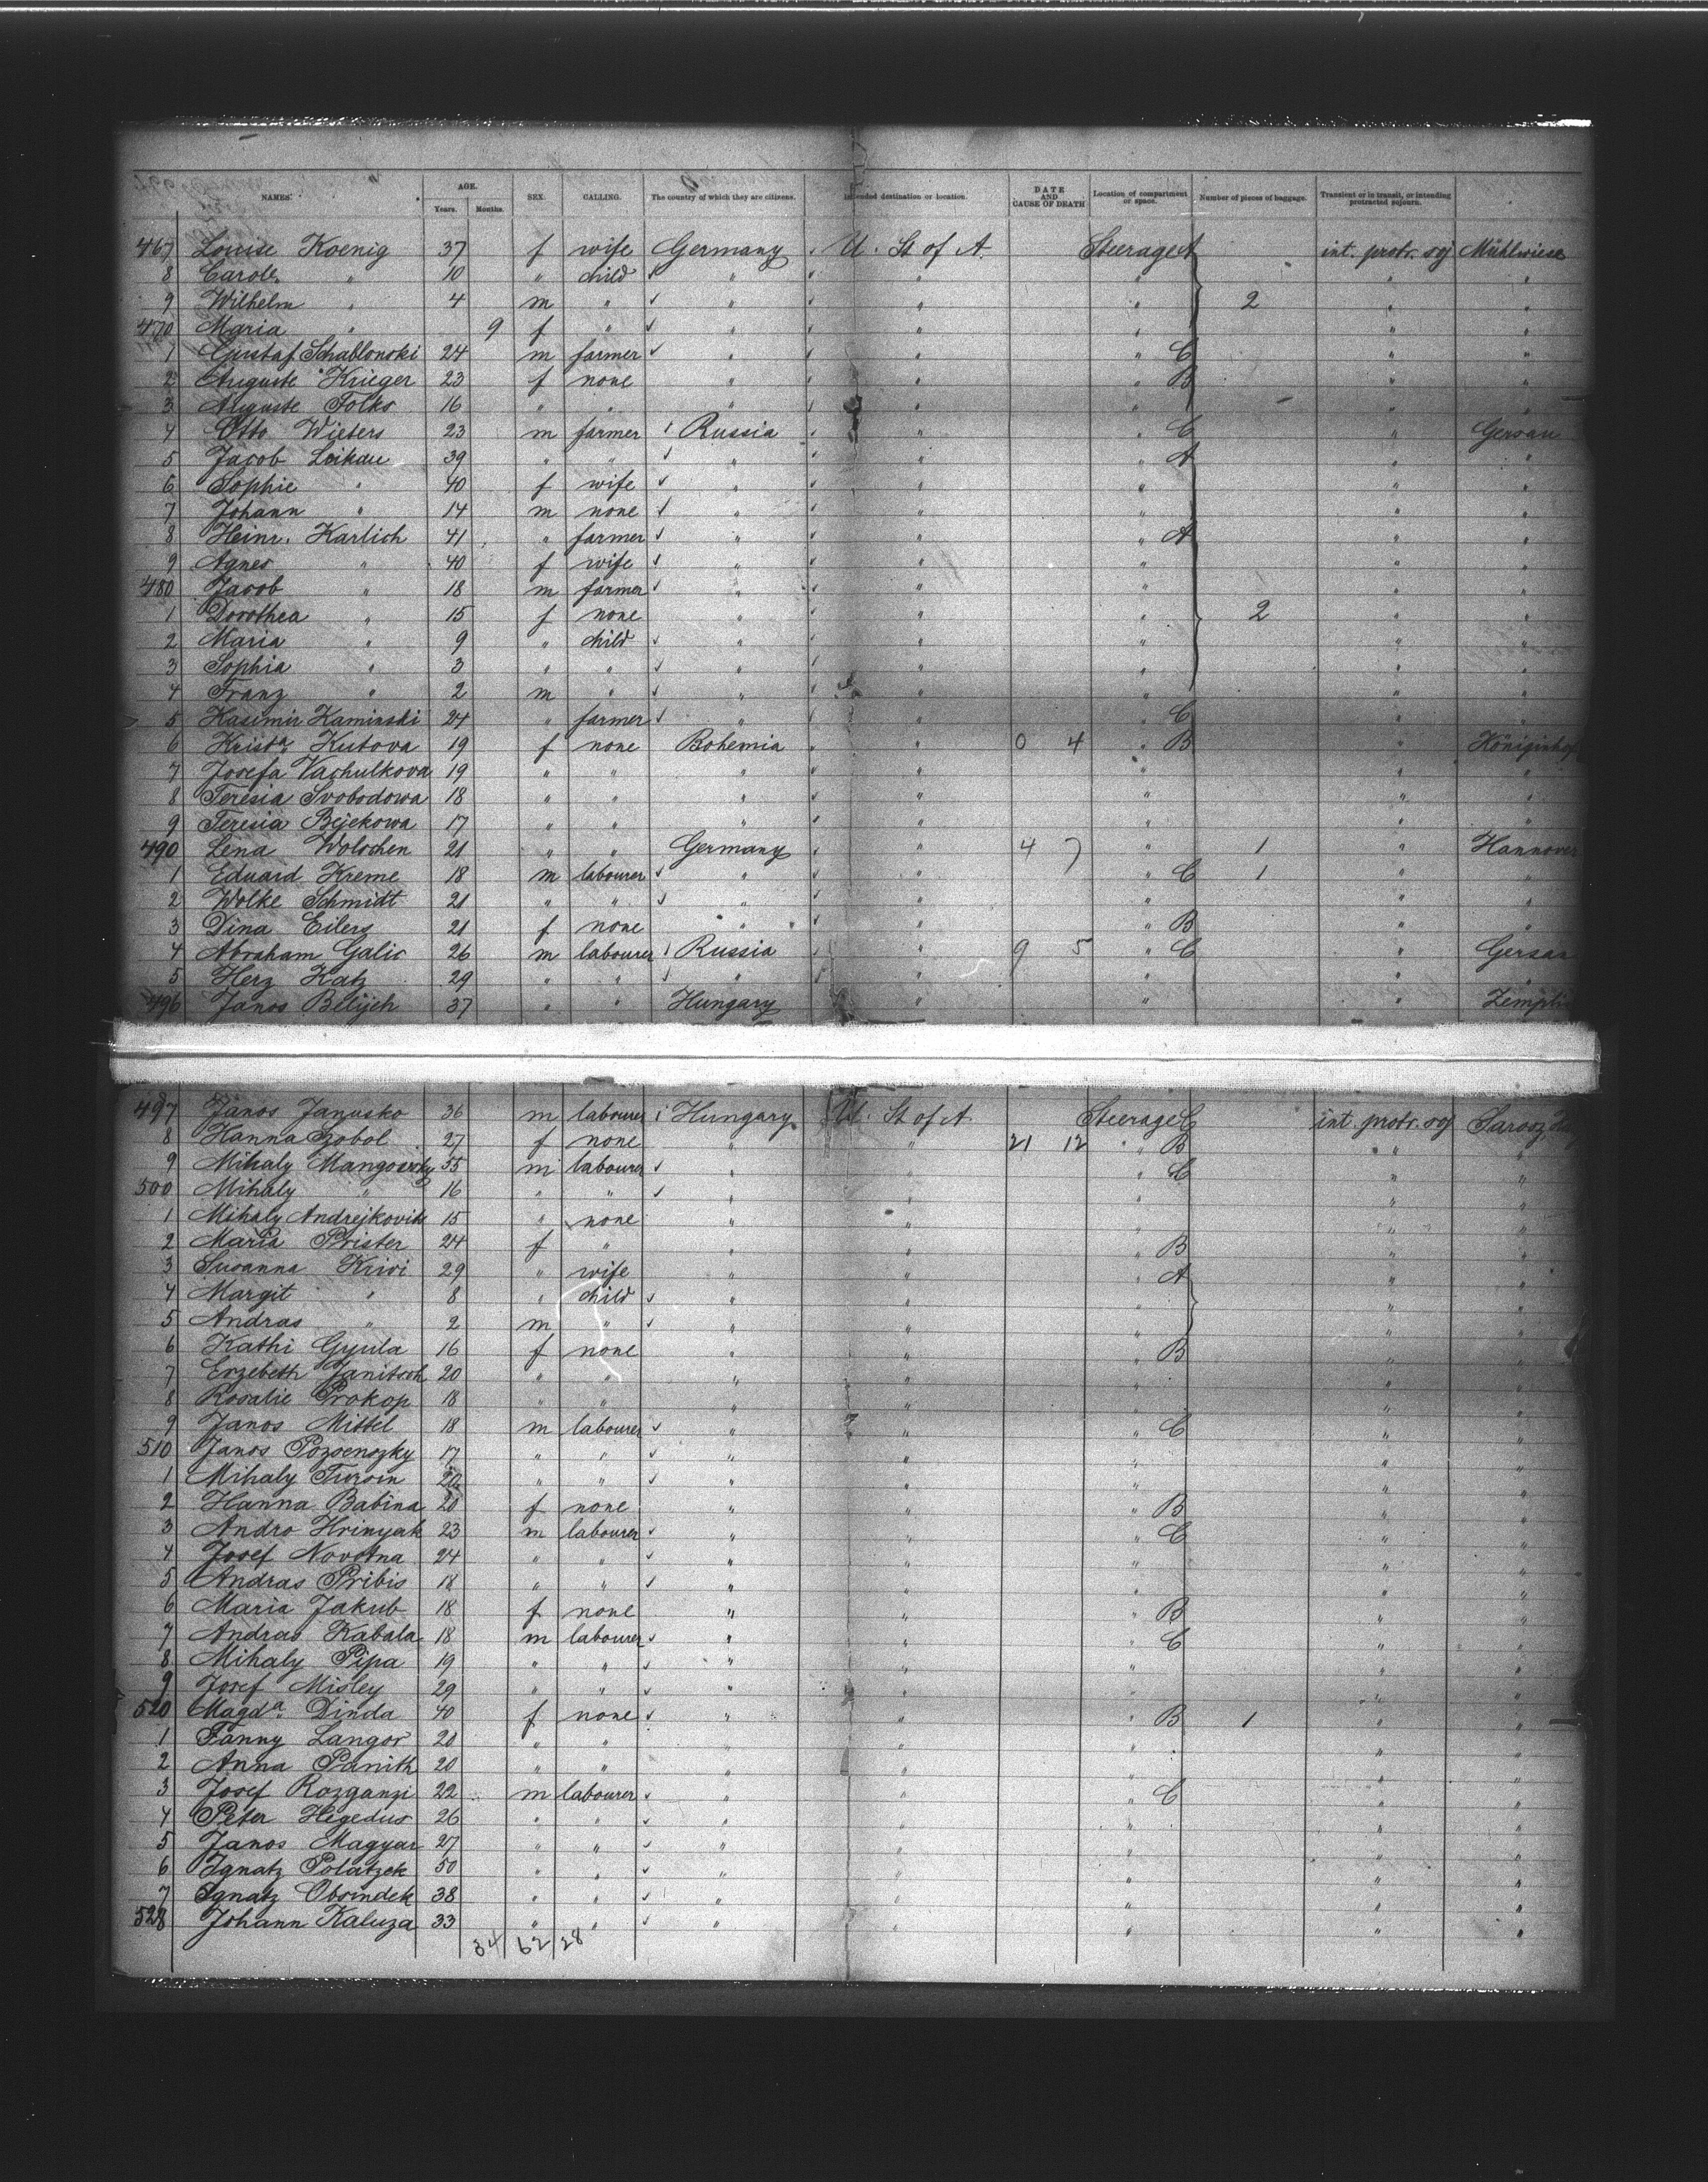 NAMES. AGE. SEX. CALLING. The country of which they are citizens. Intended destination or location. DATE AND CAUSE OF DEATH Location of compartment or space. Number of pieces of baggage. Transient or in transit, or intending protracted sojourn.
Years. Months.
467 Louise Koenig 37 f wife Germany U. St of A. Steerage A int. protr. soj Mühlwiese
8 Carole " 10 " child " " " " "
9 Wilhelm " 4 m " " " " 2 " "
470 Maria " 9 f " " " " " "
1 Gustaf Schablonski 24 m farmer " " " C " "
2 Auguste Krieger 23 f none " " " B " "
3 Auguste Folks 16 " " " " " " "
4 Otto Wieters 23 m farmer Russia " " C " Gersau
5 Jacob Leikau 39 " " " " " A " "
6 Sophie " 40 f wife " " " " "
7 Johann " 14 m none " " " " "
8 Heinr. Karlich 41 " farmer " " " A " "
9 Agnes " 40 f wife " " " " "
480 Jacob " 18 m farmer " " " " "
1 Dorothea " 15 f none " " " 2 " "
2 Maria " 9 " child " " " " "
3 Sophia " 3 " " " " " " "
4 Franz " 2 m " " " " " "
5 Kasimir Kaminski 24 " farmer " " " C " "
6 Krista Kutova 19 f none Bohemia " 0 4 " B " Königinhof
7 Josefa Vachulkova 19 " " " " " " "
8 Teresia Svobodowa 18 " " " " " " "
9 Teresia Bejekowa 17 " " " " " " "
490 Lena Wolochen 21 " " Germany " 4 7 " 1 " Hannover
1 Eduard Kreme 18 m labourer " " " C 1 " "
2 Wolke Schmidt 21 " " " " " " "
3 Dina Eilers 21 f none " " " B " "
4 Abraham Galic 26 m labourer Russia " 9 5 " C " Gersau
5 Herz Katz 29 " " " " " " "
496 Janos Belijeh 37 " " Hungary " " " Zemplin
497 Janos Janusko 36 m labourer Hungary U. St of A Steerage C int. protr. soj Sarosz
8 Hanna Gobol 27 f none " " 21 12 " B " "
9 Mihaly Mangovsky 55 m labourer " " " C " "
500 Mihaly " 16 " " " " " " "
1 Mihaly Andrejkovich 15 " none " " " " "
2 Maria Prister 24 f " " " " B " "
3 Susanna Kiwi 29 " wife " " " A " "
4 Margit " 8 " child " " " " "
5 Andras " 2 m " " " " " "
6 Kathi Gyula 16 f none " " " B " "
7 Erzebeth Janitsch 20 " " " " " " "
8 Rosalie Prokop 18 " " " " " " "
9 Janos Mittel 18 m labourer " " " C " "
510 Janos Pozsenszky 17 " " " " " " "
1 Mihaly Tursin 20 " " " " " " "
2 Hanna Babina 20 f none " " " B " "
3 Andro Hrinyak 23 m labourer " " " C " "
4 Josef Novotna 24 " " " " " " "
5 Andras Pribis 18 " " " " " " "
6 Maria Jakub 18 f none " " " B " "
7 Andras Kabala 18 m labourer " " " C " "
8 Mihaly Pipa 19 " " " " " " "
9 Josef Misley 29 " " " " " " "
520 Magda Dinda 40 f none " " " B 1 " "
1 Fanny Langor 20 " " " " " " "
2 Anna Panith 20 " " " " " " "
3 Josef Rozganzi 22 m labourer " " " C " "
4 Peter Hegedus 26 " " " " " " "
5 Janos Magyar 27 " " " " " " "
6 Ignatz Polatzek 50 " " " " " " "
7 Ignatz Obsindek 38 " " " " " " "
528 Johann Kaluza 33 " " " " " " "
34 62 28